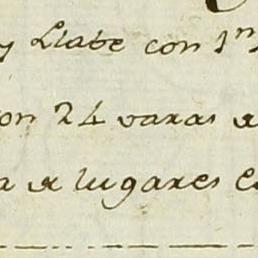 y Llabe con 1n
on 24 varas de
a de lugares